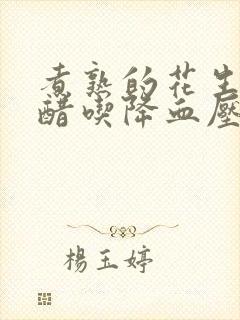 煮熟的花生
醋喫降血壓
楊玉婷